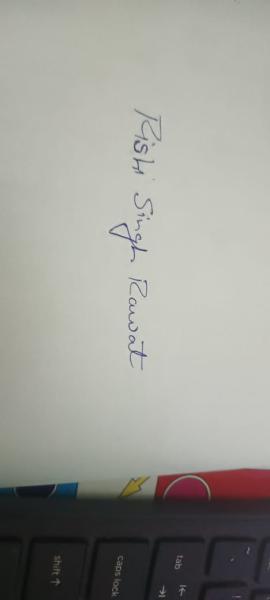 Rishi Singh Rawat
~
`
!
tab
caps lock
shift ↑